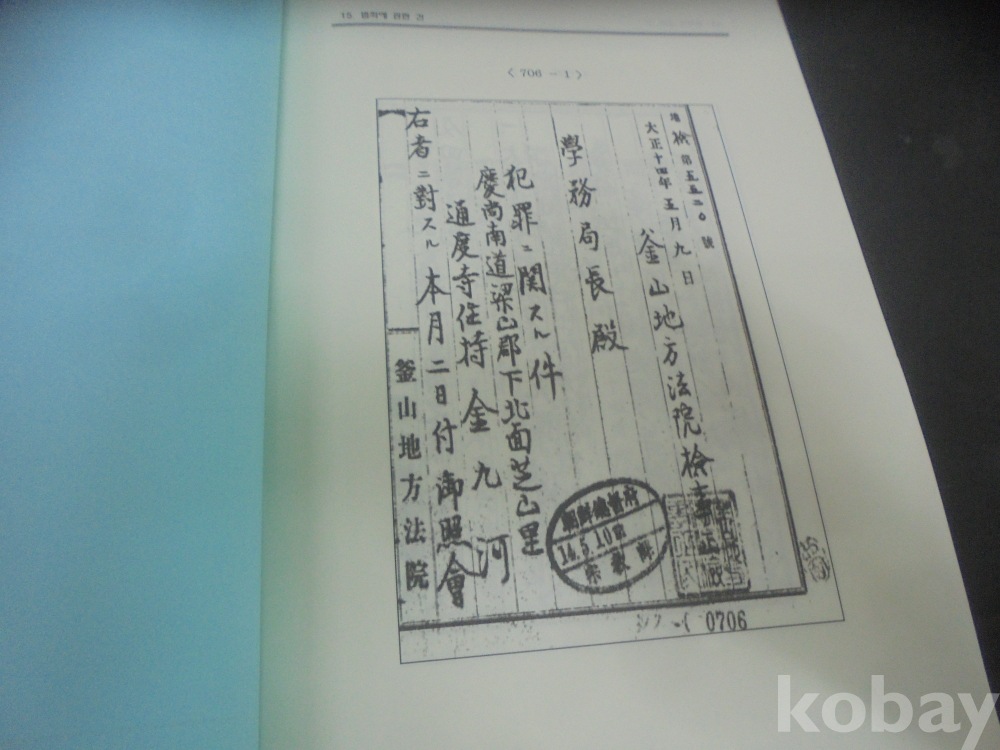 < 706 - 1 >
檢第五五二〇號
大正十四年五月九日
釜山地方法院檢事正
學務局長殿
犯罪ニ関スル件
慶尚南道梁山郡下北面芝山里
通度寺住持 金九河
右者ニ對スル本月二日付御照會
釜山地方法院
朝鮮總督府
14.5.10
宗教課
0706
kobay